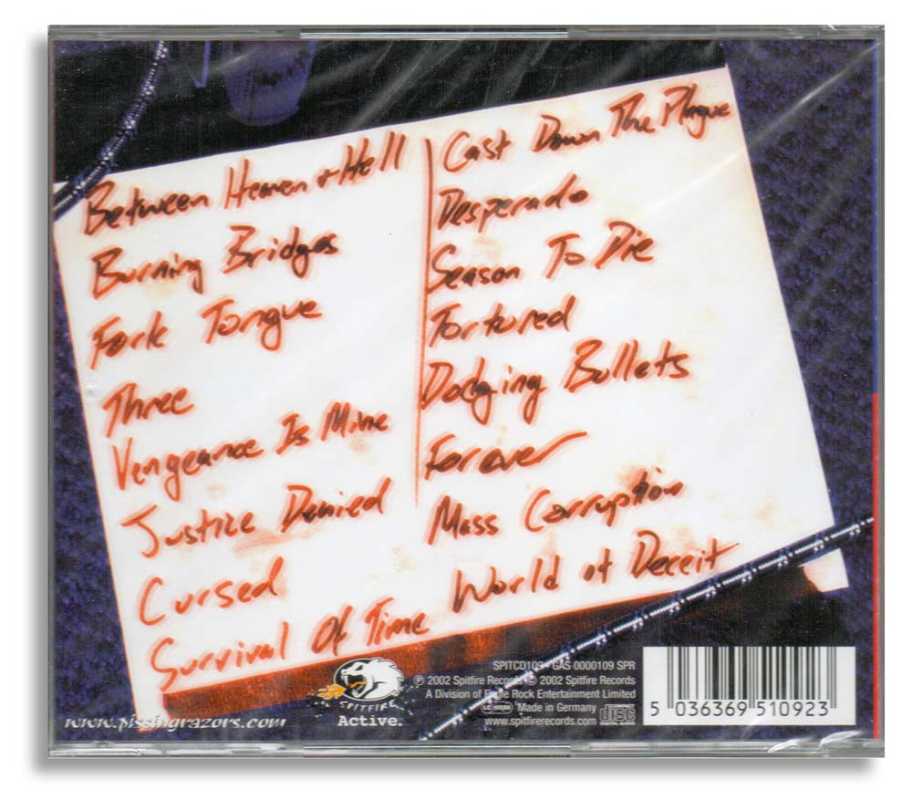 Between Heaven & Hell
Burning Bridges
Fork Tongue
Three
Vengeance Is Mine
Justice Denied
Cursed
Survival Of Time
Cast Down The Plague
Desperado
Season To Die
Tortured
Dodging Bullets
Forever
Mass Corruption
World of Deceit
www.pissingrazors.com
SPITFIRE
Active.
SPITCD109 - GAS 0000109 SPR
℗ 2002 Spitfire Records © 2002 Spitfire Records
A Division of Eagle Rock Entertainment Limited
Made in Germany
www.spitfirerecords.com
disc
5 036369 510923